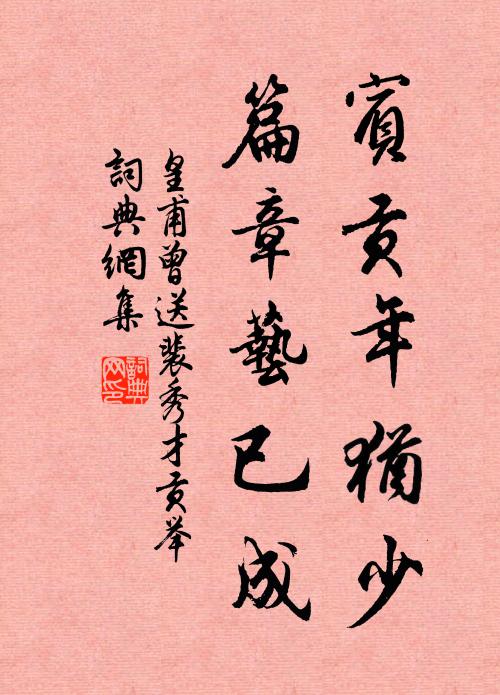 賓貢年猶少
篇章藝已成
皇甫曾送裴秀才貢举
詞典網集
詞典網印